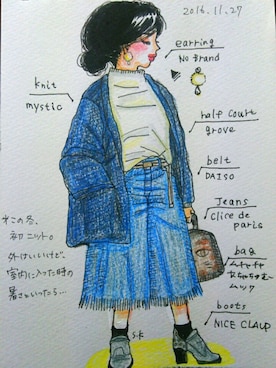 2016.11.27
earring
No Brand
knit
mystic
half court
grove
belt
DAISO
Jeans
Clice de
paris
bag
ムック
boots
NICE CLAUP
この冬、
初ニット。
外はいいけど、
室内に入った時の
暑さといったら…
S.K